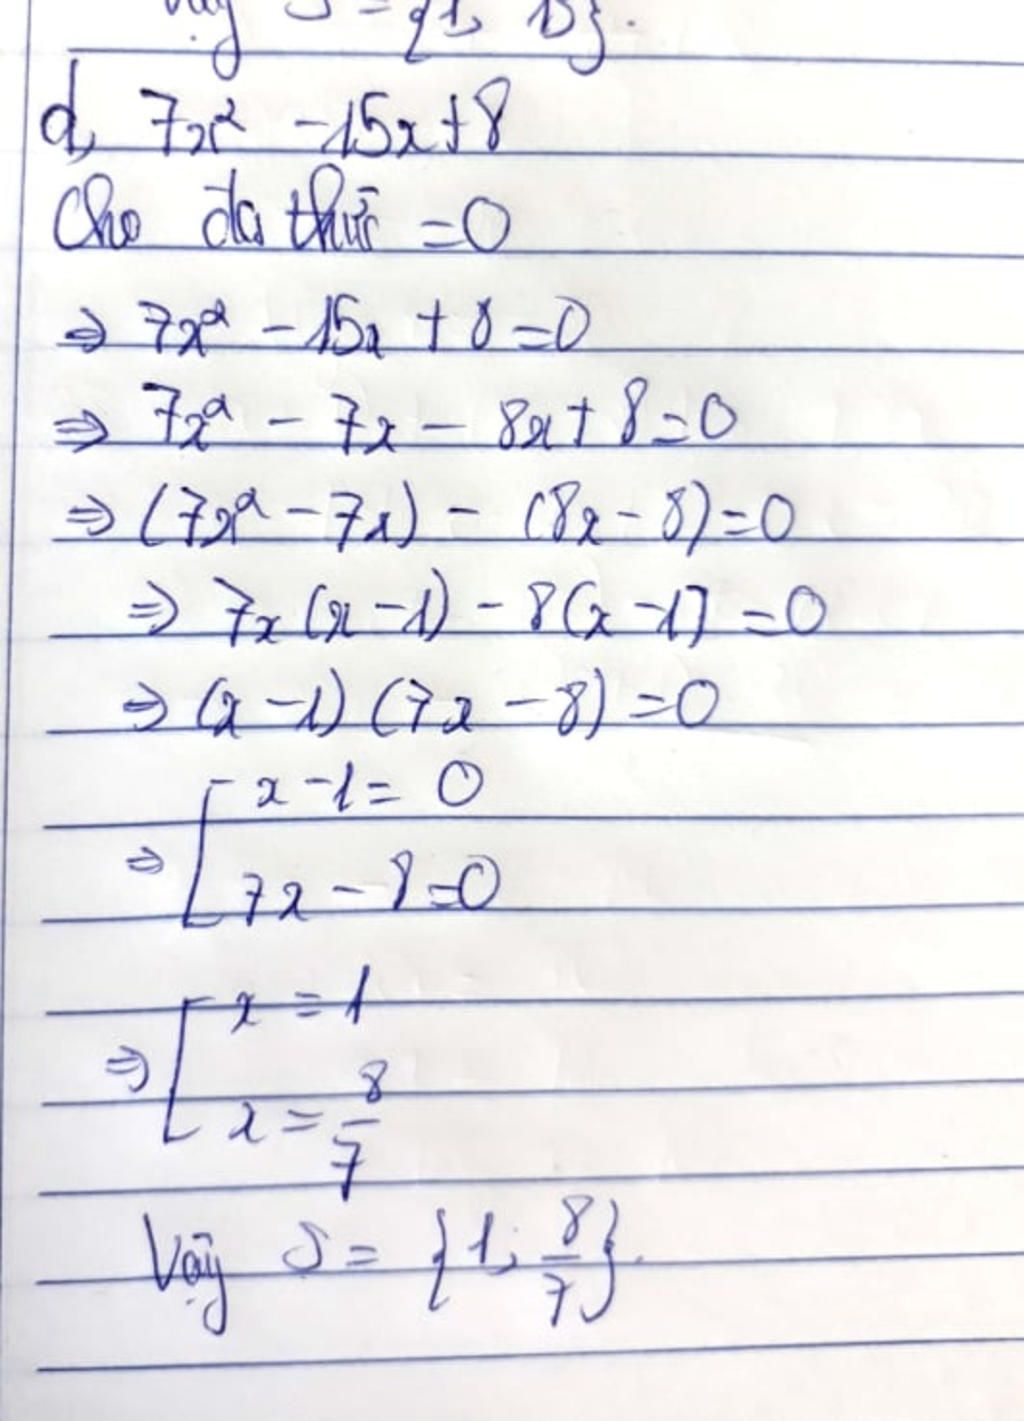 Vậy S = {1,
d, 7x² - 15x + 8
Cho đa thức = 0
⇒ 7x² - 15x + 8 = 0
⇒ 7x² - 7x - 8x + 8 = 0
⇒ (7x² - 7x) - (8x - 8) = 0
⇒ 7x (x - 1) - 8(x - 1) = 0
⇒ (x - 1) (7x - 8) = 0
⇒ [ x - 1 = 0
7x - 8 = 0
⇒ [ x = 1
x = 8/7
Vậy S = {1; 8/7}.